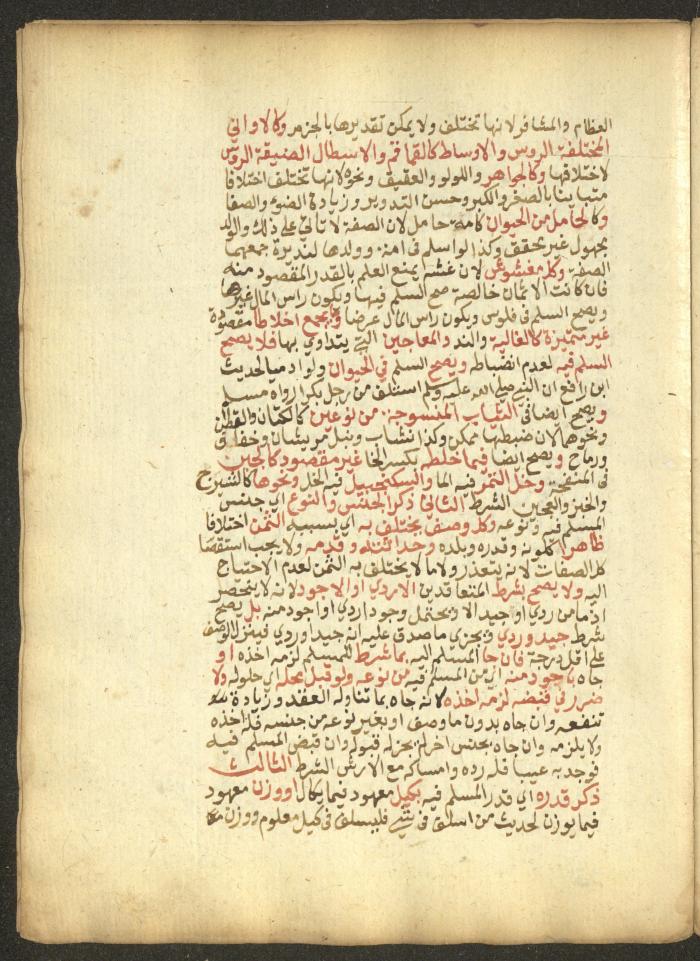 العظام والمشافر لانها تختلف ولا يمكن تقديرها بالحزمر وكالاواني
المختلفة الروس والاوساط كالقماقم والاسطال الضيقة الروس
لاختلافها وكالجواهر واللولو والعقيق ونحوه لانها تختلف اختلافا
متباينا بالصغر والكبر وحسن التدوير وزيادة الضوء والصفا
وكالحامل من الحيوان كامة حامل لان الصفة لا تاتي على ذلك والولد
مجهول غير محقق وكذا لو اسلم في امة وولدها لندرة جمعهما
الصفة وكل مغشوش لان غشه يمنع العلم بالقدر المقصود منه
فان كانت الاثمان خالصة صح السلم فيها ويكون راس المال غيرها
ويصح السلم في فلوس ويكون راس المال عرضا وما يجمع اخلاطا مقصودة
غير متميزة كالغالية والند والمعاجين التي يتداوي بها فلا يصح
السلم فيه لعدم انضباطه ويصح السلم في الحيوان ولو ادميا لحديث
ابي رافع ان النبي صلى الله عليه وسلم استلف من رجل بكرا رواه مسلم
ويصح ايضا في الثياب المنسوجة من نوعين كالكتان والقطن
ونحوهما لان ضبطها ممكن وكذا نشاب ونبل مريشان وخفاف
ورماح ويصح ايضا فيما خلطه بكسر الخا غير مقصود كالجبن
فيه المنفحة وخل التمر فيه الما والسكنجبيل فيه الخل ونحوها كالشيرج
والخبز والعجين الشرط الثاني ذكر الجنس والنوع اي جنس
المسلم فيه ونوعه وكل وصف يختلف به اي بسببه الثمن اختلافا
ظاهرا كلونه وقدره وبلده وحداثته وقدمه ولا يجب استقصا
كل الصفات لانه يتعذر ولا ما لا يختلف به الثمن لعدم الاحتياج
اليه ولا يصح بشرط المتعاقدين الاردي او الاجود لانه لا ينحصر
اذ ما من ردي او جيد الا ويحتمل وجود اردي او اجود منه بل يصح
شرط جيد وردي ويجزي ما صدق عليه انه جيد او ردي فينزل الوصف
على اقل درجة فان جا المسلم اليه بما شرط للمسلم لزمه اخذه او
جاه باجود منه اي من المسلم فيه من نوعه ولو قبل محله اي حلوله ولا
ضرر في قبضه لزمه اخذه لانه جاه بما تناوله العقد وزيادة
تنفعه وان جاه بدون ما وصف او بغير نوعه من جنسه فله اخذه
ولا يلزمه وان جاه بجنس اخر لم يجز له قبوله وان قبض المسلم فيه
فوجد به عيبا فله رده وامساكه مع الارش الشرط الثالث
ذكر قدره اي قدر المسلم فيه بكيل معهود فيما يكال او وزن معهود
فيما يوزن لحديث من اسلف في شي فليسلف في كيل معلوم ووزن